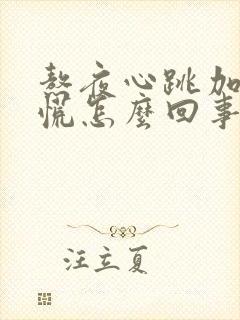 熬夜心跳加
慌怎麼回事
汪立夏